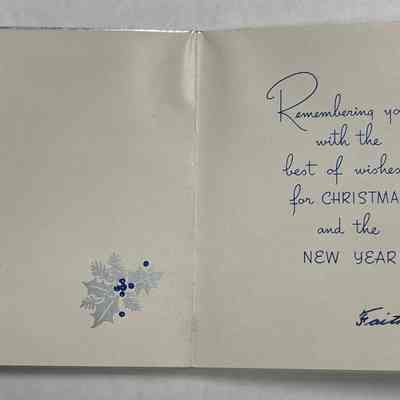 Remembering yo
with the
best of wishes
for CHRISTMA
and the
NEW YEAR
Fait